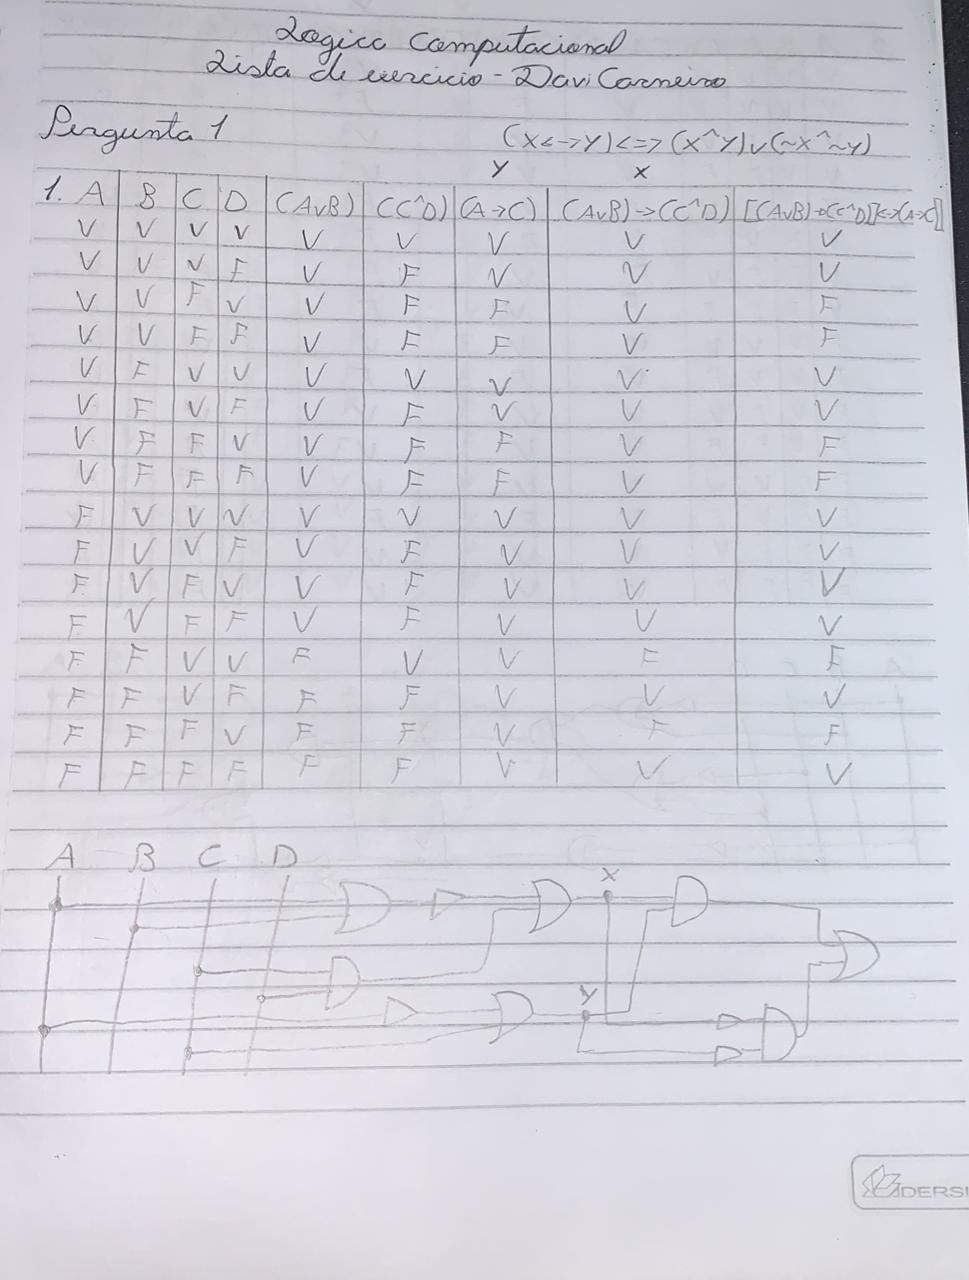 Logica Computacional
Lista de exercicio - Davi Carneiro
Pergunta 1
(X<->Y)<=>(X^Y)v(~X^~Y)
Y X
1. A B C D (AvB) (C^D) (A→C) (AvB)→(C^D) [(AvB)→(C^D)]<->(A→C)]
V V V V V V V V V
V V V F V F V V V
V V F V V F F V F
V V F F V F F V F
V F V V V V V V V
V F V F V F V V V
V F F V V F F V F
V F F F V F F V F
F V V V V V V V V
F V V F V F V V V
F V F V V F V V V
F V F F V F V V V
F F V V F V V F F
F F V F F F V V V
F F F V F F V F F
F F F F F F V V V
A B C D
X
Y
DERSI